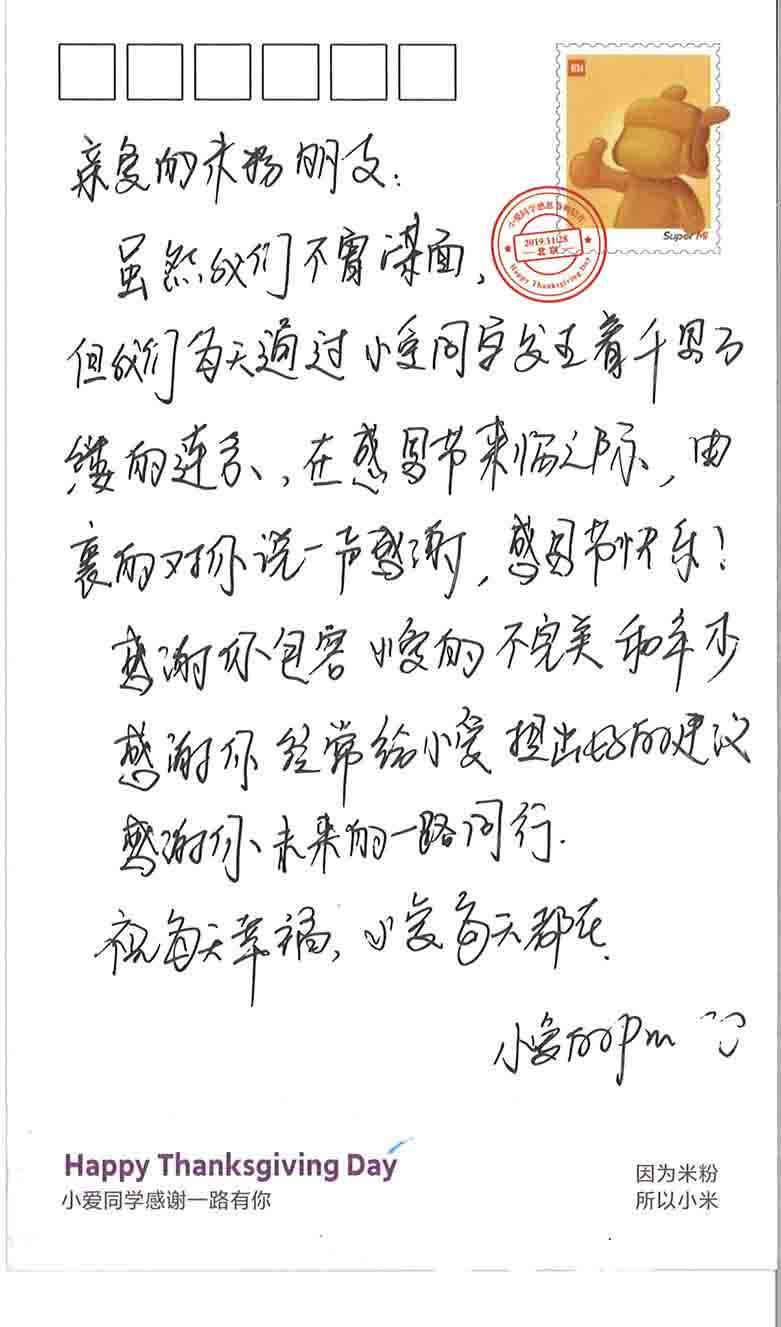 Super Mi
小爱同学感恩节明信片
2019.11.28
北京
Happy Thanksgiving Day
亲爱的米粉朋友:
虽然我们不曾谋面,
但我们每天通过小爱同学发生着千丝万
缕的连系、在感恩节来临之际,由
衷的对你说一声感谢,感恩节快乐!
感谢你包容小爱的不完美和年少
感谢你经常给小爱提出好的建议
感谢你未来的一路同行.
祝每天幸福,小爱每天都在.
小爱的Pm
Happy Thanksgiving Day
小爱同学感谢一路有你
因为米粉
所以小米